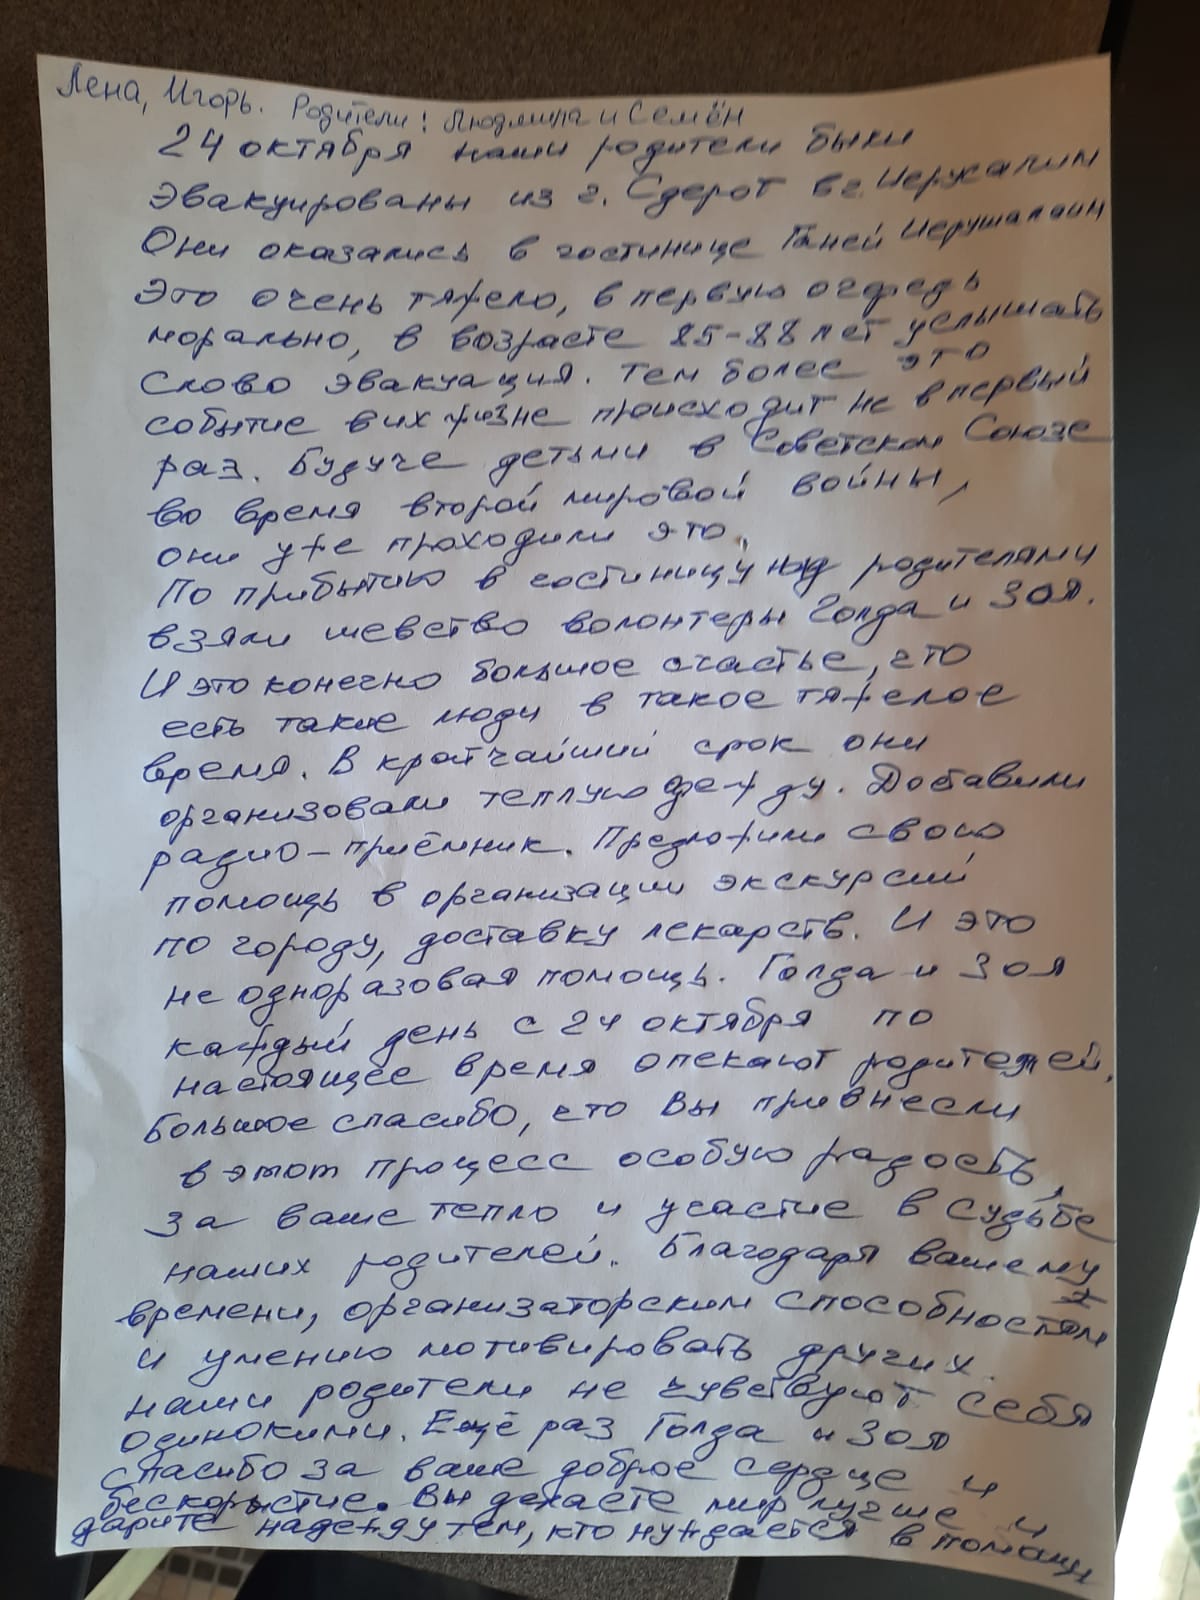 Лена, Игорь. Родители: Людмила и Семён
24 октября наши родители были
эвакуированы из г. Сдерот в г. Иерусалим
Они оказались в гостинице Ганей Иерушалаим
Это очень тяжело, в первую очередь
морально, в возрасте 85-88 лет услышать
слово эвакуация. Тем более это
событие в их жизне происходит не в первый
раз. Будуче детьми в Советском Союзе
во время второй мировой войны,
они уже проходили это.
По прибытию в гостиницу над родителями
взяли шевство волонтеры Голда и Зоя.
И это конечно большое счастье, что
есть такие люди в такое тяжелое
время. В кратчайший срок они
организовали теплую одежду. Добавили
радио-приёмник. Предложили свою
помощь в организации экскурсий
по городу, доставку лекарств. И это
не одноразовая помощь. Голда и Зоя
каждый день с 24 октября по
настоящее время опекают родителей.
Большое спасибо, что Вы привнесли
в этот процесс особую радость,
за ваше тепло и участие в судьбе
наших родителей. Благодаря вашему
времени, организаторским способностям
и умению мотивировать других.
наши родители не чувствуют себя
одинокими. Ещё раз Голда и Зоя
спасибо за ваше доброе сердце и
бескорыстие. Вы делаете мир лучше и
дарите надежду тем, кто нуждается в помощи